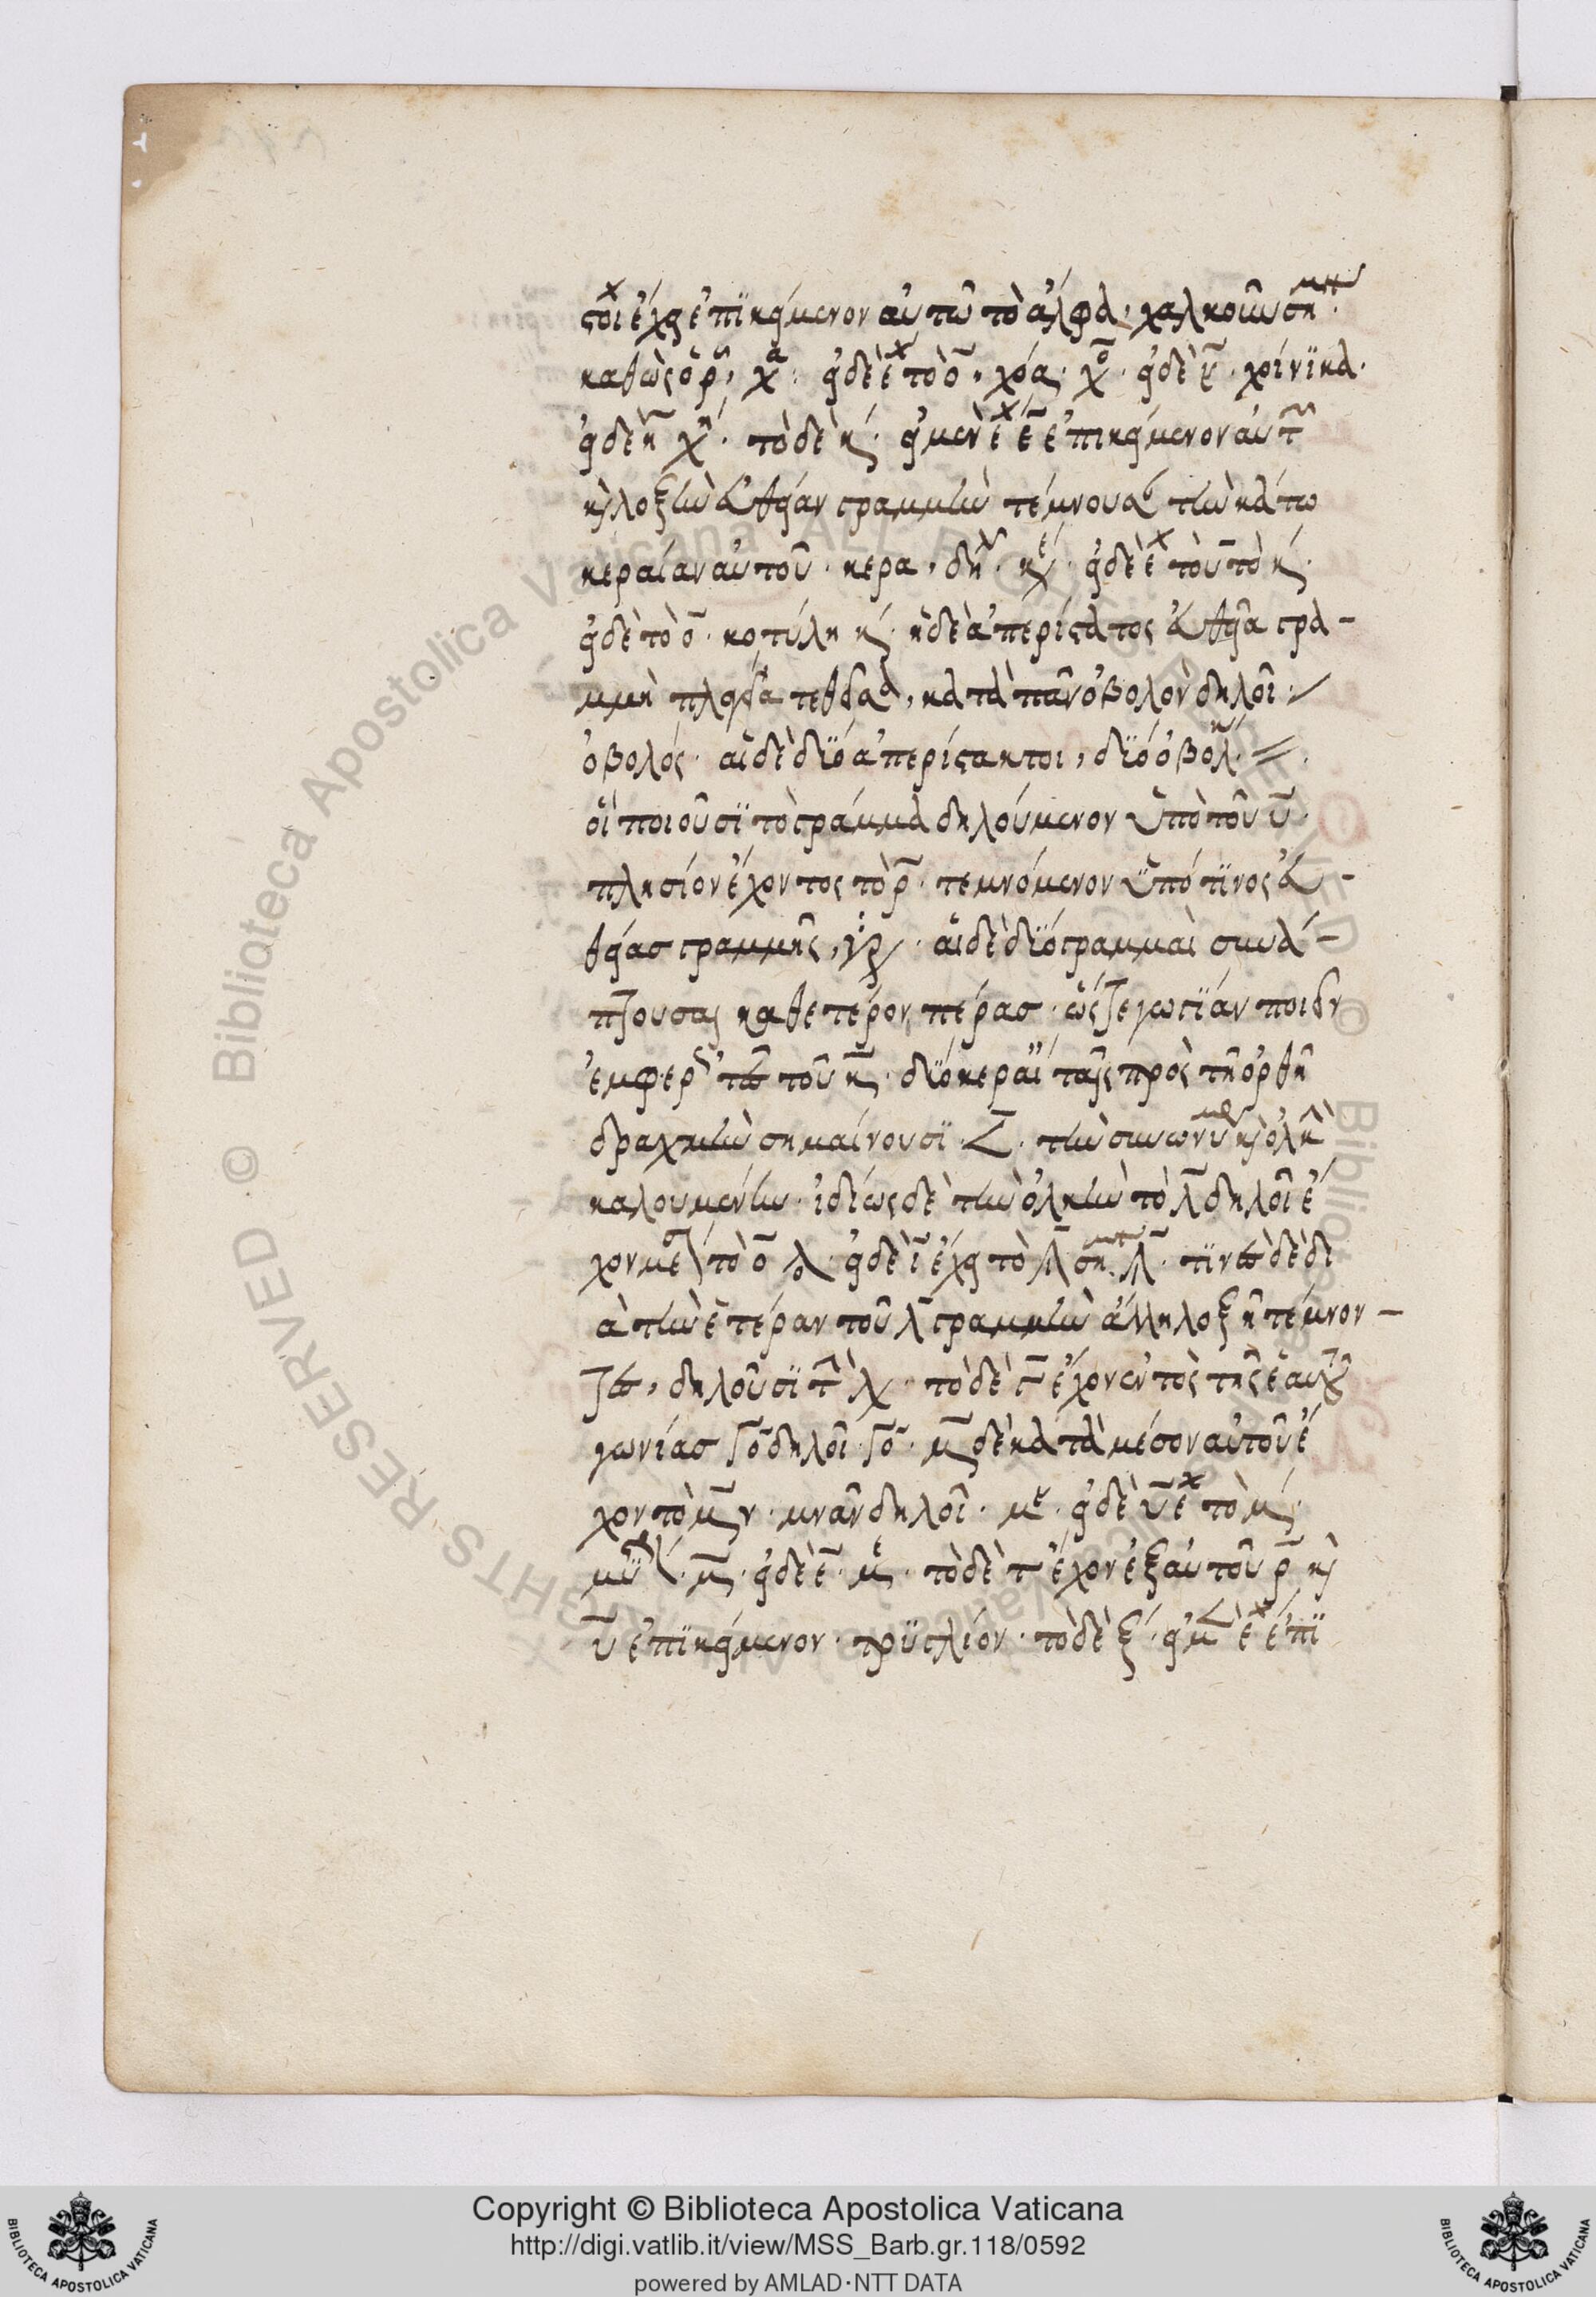 στοιχ ἔχει ἐπϊκείμενον αὐτῶ τὸ ἄλφα, χαλκοῦν σημ.
καθὼς ὁρ, χα. εἰ δὲ ἔχ τὸ ο, χόα. χο. εἰ δὲ . χοίνϊκα.
εἰ δὲ η χη. τὸ δὲ κ. εἰ μὲν ἔχ ε ἐπικείμενον αὐτ
κ λοξὴν εὐθεῖαν γραμμὴν τέμνουσαν τὴν κάτω
κεραίαν αὐτοῦ. κερα, δη. κε. εἰ δὲ ἔχ τοῦτο κ.
εἰ δὲ τὸ ο. κοτύλη κ. ἡ δὲ ἀπερίστατος εὐθεῖα γρα-
μμὴ πλαγία τεθεῖσα, κατὰ πᾶν ὀβολὸν δηλοῖ. /
ὀβολός. αἱ δὲ δύο ἀπερίστακτοι, δύο ὀβολ. =.
οἳ ποιοῦσϊ τὸ γράμμα δηλούμενον ὑπὸ τοῦ υ.
πλησίον ἔχοντος τὸ ρ. τεμνόμενον ὑπό τϊνος εὐ-
θείας γραμμῆς, . αἱ δὲ δύο γραμμαὶ συνά-
πτουσαι καθ ἕτερον πέρας. ὥστε γωνίαν ποιεῖν
ἐμφερ τῶ τοῦ κ. δύο κεραί ταῖς πρὸς τῆ ὀρθῆ
δραχμὴν σημαίνουσϊ. <. τὴν συνωνύμ κ ὁλκὴ
καλουμένην. ἰδίως δὲ τὴν ὁλκὴν τὸ λ δηλοῖ ἐ
χον μες τὸ ο . εἰ δὲ ι ἔχει τὸ λ σημ. λ. τϊνὲς δὲ δι
ὰ τὴν ἑτέραν τοῦ λ γραμμὴν ἄλλη λοξῆ τέμνον-
τες, δηλοῦσϊ τ λ. τὸ δὲ Γ ἔχον ἐντὸς τῆς ἑαυτοῦ
γωνίας Γο δηλοῖ Γο. μ δὲ κατὰ μέσον αὐτοῦ ἐ
χον τὸ μ ν. μνᾶν δηλοῖ. μ. εἰ δὲ υ ἔχ τὸ μ.
μϋ. μ. εἰ δὲ ε. με. τὸ δὲ τ ἔχον ἐξ αὐτοῦ ρ κ
υ ἐπϊκείμενον. τρϋβλίον. τὸ δὲ ξ. εἰ μὲ ἔχ ἐπϊ
Copyright © Biblioteca Apostolica Vaticana
http://digi.vatlib.it/view/MSS_Barb.gr.118/0592
powered by AMLAD·NTT DATA